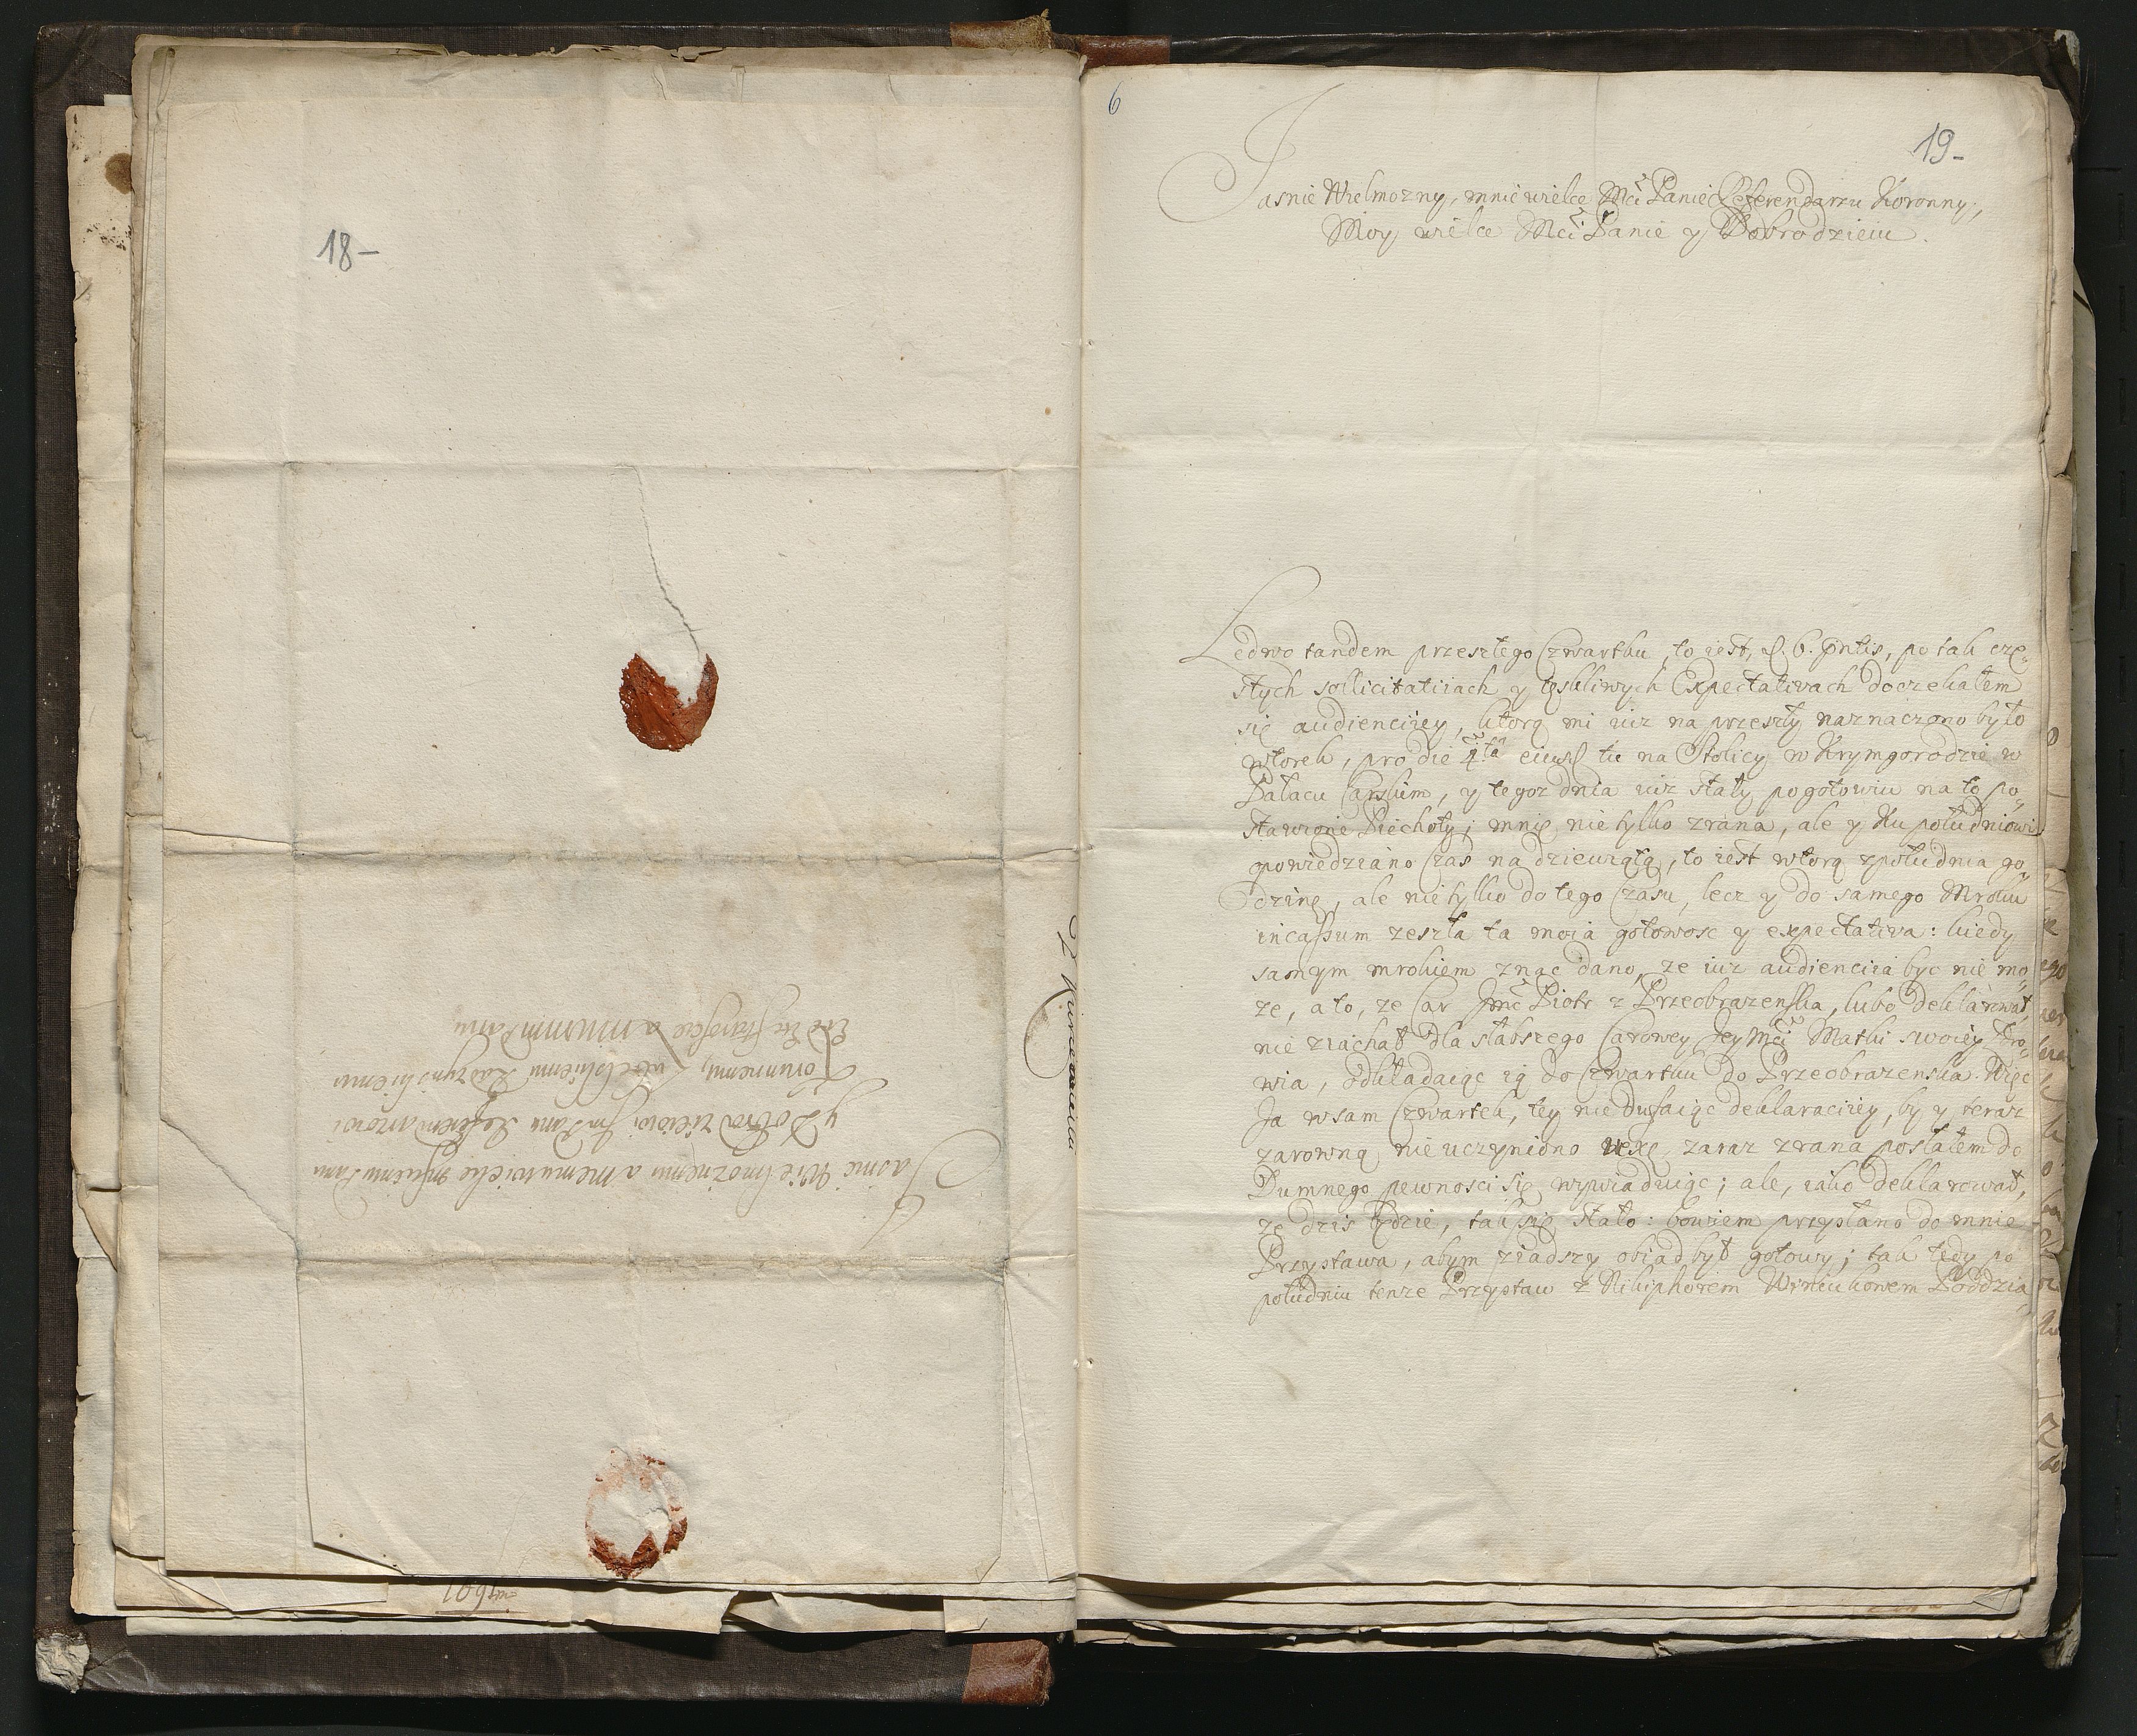 18-
Jasnie Wielmożnemu a Memu wielce Panu
y Dobrodzieiowi Panu Referendarzowi
Koronnemu,
6
19-
Jasnie Wielmozny, mnie wielce Mci Panie Referendarzu Koronny,
Moy wielce Mci Panie y Dobrodzieiu.
Ledwo tandem przeszłego Czwartku, to iest, d. 6. pntis, po tak czę-
stych sollicitatiiach y tęskliwych Expectativach doczekałem
się audienciiey, ktorą mi iuz na przeszły naznaczono było
wtorek, pro die 4ta eiusd tu na Stolicy w Krymgorodzie w
Pałacu Carskim, y tegoz dnia iuz stały pogotowiu na to po-
stawione Piechoty; mnie nie tylko zrana, ale y Ku południowi
opowiedziano Czas na dziewiątą, to iest wtorą z południa go-
dzinę, ale nie tylko do tego Czasu, lecz y do samego Mroku
incassum zeszła ta moia gotowosc y expectativa: kiedy
samym mrokiem znac dano, ze iuz audienciia byc nie mo-
ze, a to, ze Car Jmc Piotr z Przeobrazenska, lubo deklarował,
nie ziachał dla słabszego Carowey Jey Mci Matki swoiey zdro-
wia, odkładaiąc ią do Czwartku do Przeobrazenska. Więc
Ja w sam Czwartek, tey nie dufaiąc deklaraciiey, by y teraz
zarowną nie uczyniono vexę, zaraz zrana posłałem do
Dumnego pewnosci się wywiaduiąc; ale, iako deklarował,
ze dzis będzie, tak się stało: bowiem przysłano do mnie
Przystawa, abym ziadszy obiad był gotowy; tak tedy po
południu tenze Przystaw z Nikiphorem Podzia-